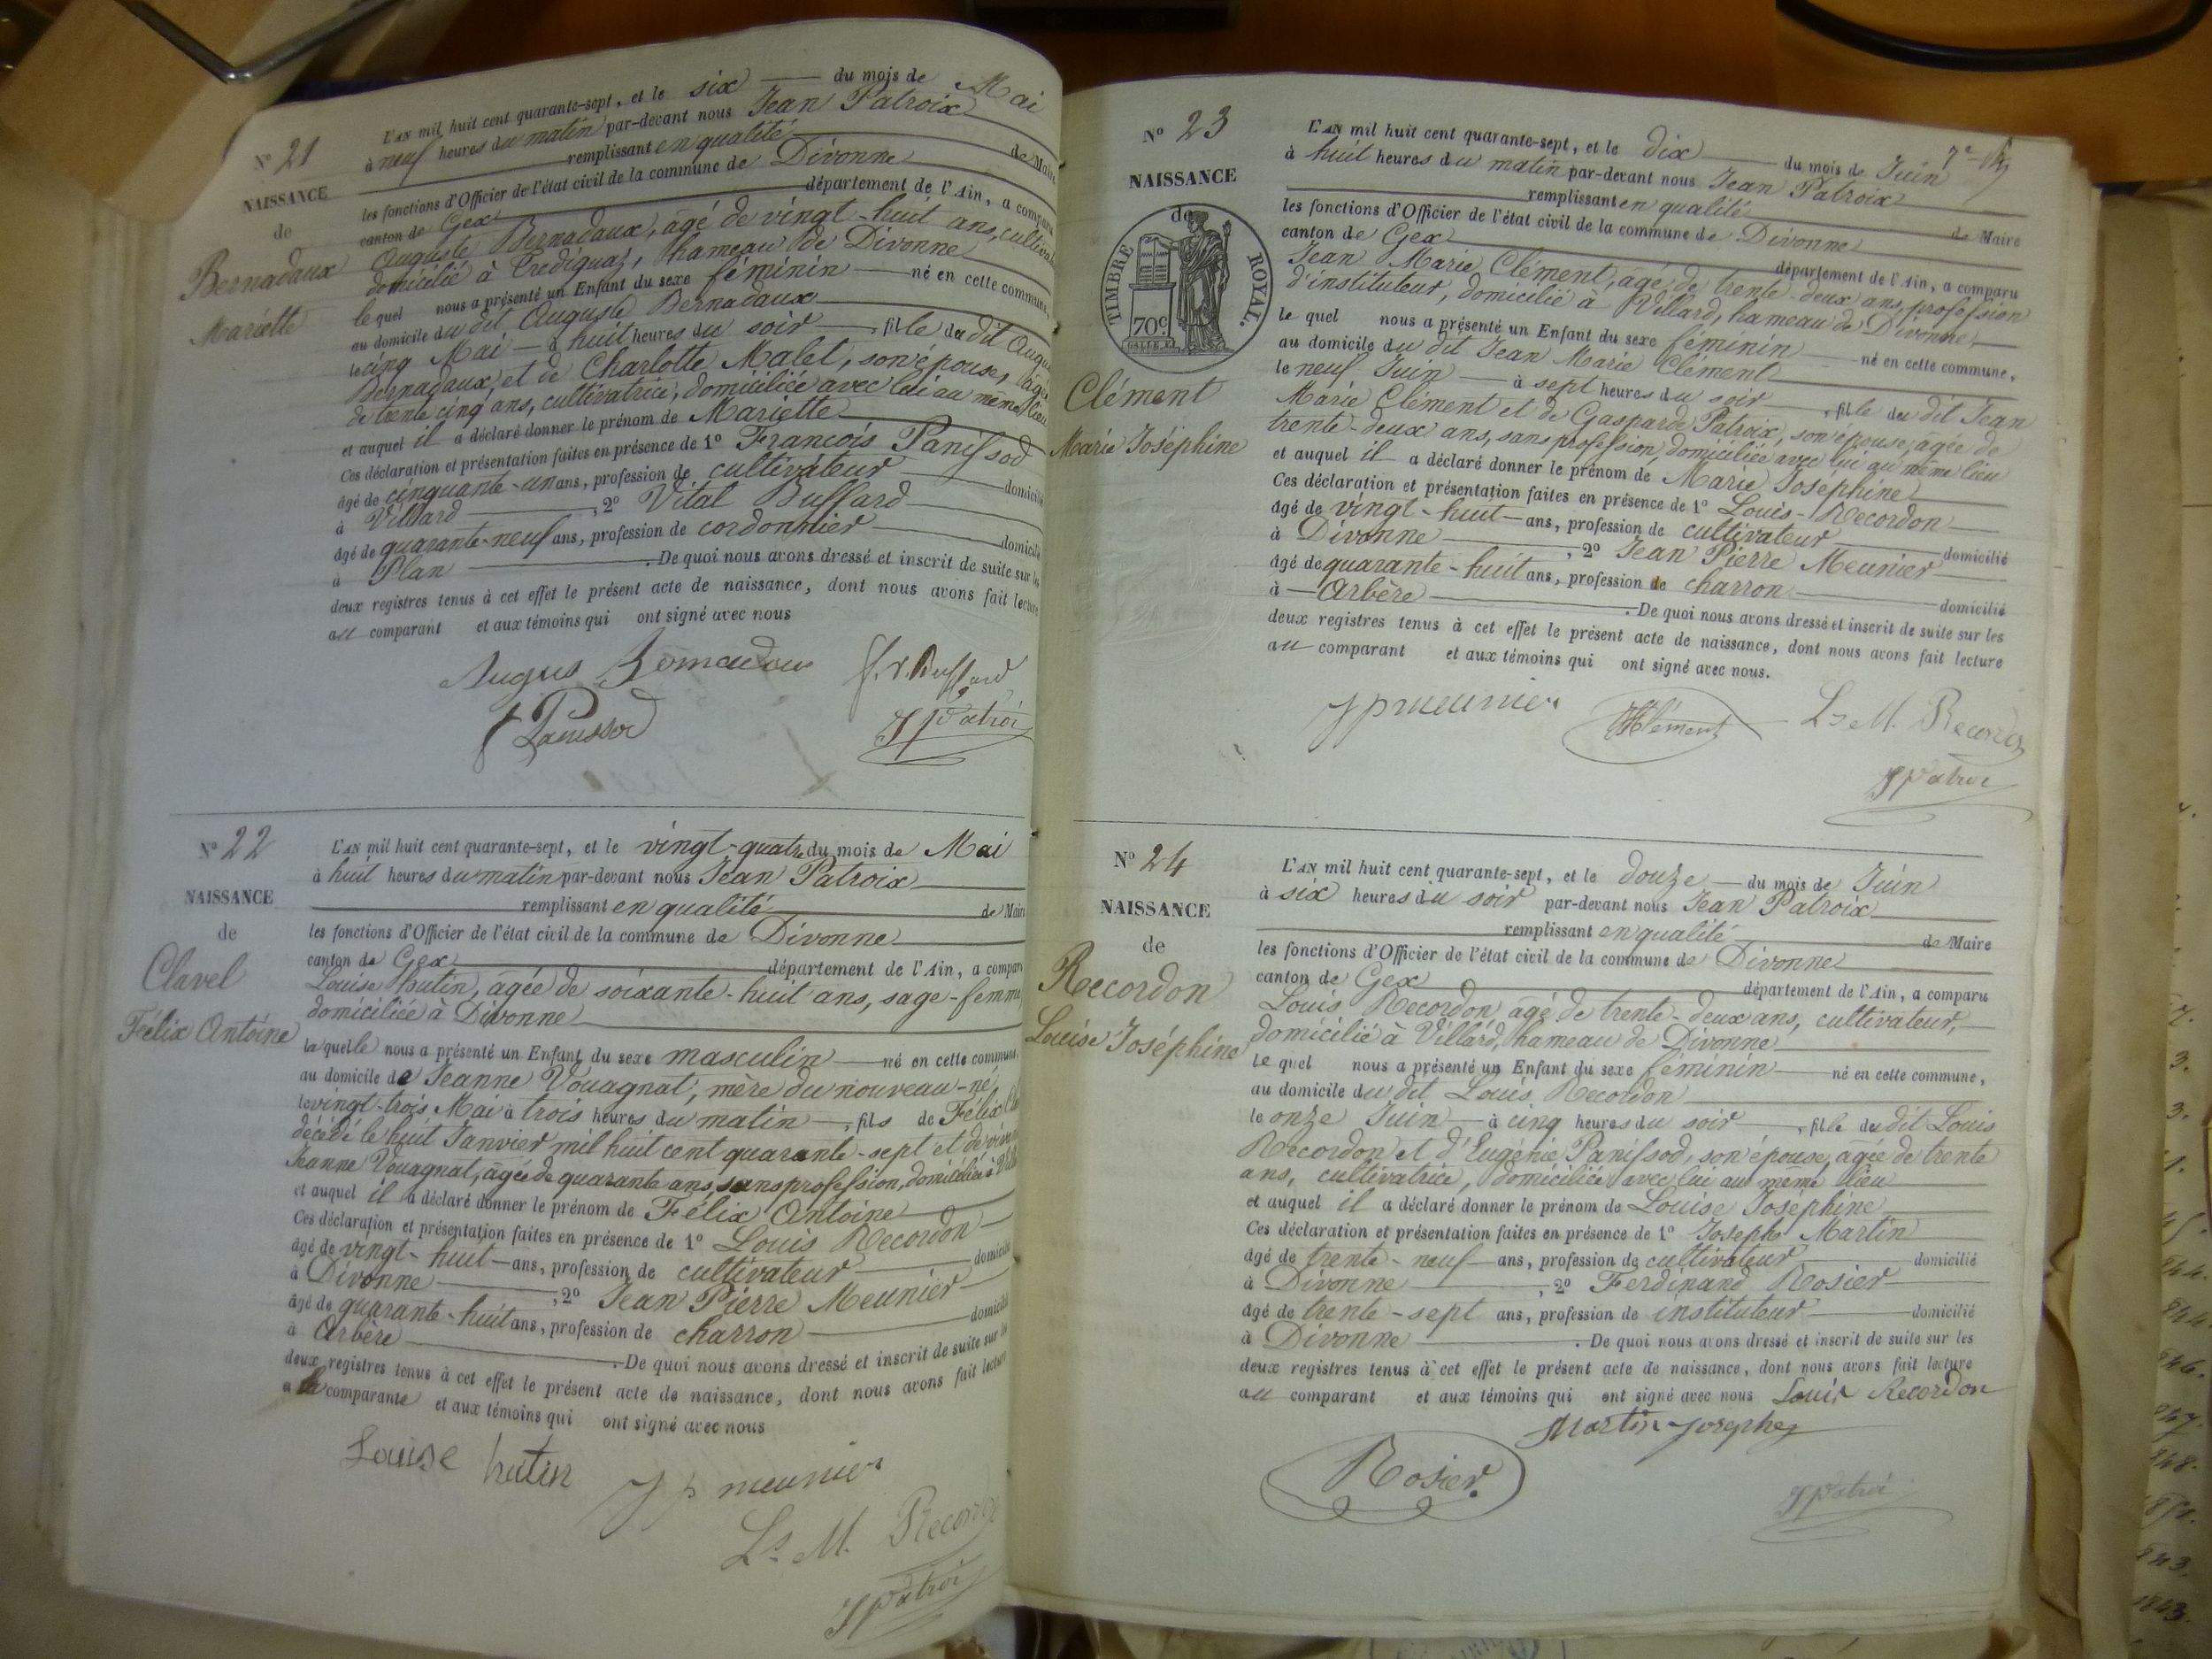 N° 21
NAISSANCE
de
Bernadaux
Mariette
L'AN mil huit cent quarante-sept, et le six du mois de Mai
à neuf heures du matin par-devant nous Jean Patroix
remplissant en qualité de Maire
les fonctions d'Officier de l'état civil de la commune de Divonne
canton de Gex département de l'Ain, a comparu
Auguste Bernadaux, agé de vingt-huit ans,
domicilié à hameau de Divonne
le quel nous a présenté un Enfant du sexe féminin né en cette commune,
au domicile du dit Auguste Bernadaux
le cinq Mai à huit heures du soir, fille du dit
Bernadaux, et de Charlotte Malet, son épouse,
de trente cinq ans, cultivatrice, domiciliée avec lui au même lieu
et auquel il a déclaré donner le prénom de Mariette
Ces déclaration et présentation faites en présence de 1° François Panissod
âgé de cinquante-un ans, profession de cultivateur domicilié
à Villard, 2° Vital Buffard
âgé de quarante-neuf ans, profession de cordonnier domicilié
à Plan. De quoi nous avons dressé et inscrit de suite sur les
deux registres tenus à cet effet le présent acte de naissance, dont nous avons fait lecture
au comparant et aux témoins qui ont signé avec nous
N° 22
NAISSANCE
de
Clavel
Félix Antoine
L'AN mil huit cent quarante-sept, et le vingt-quatre du mois de Mai
à huit heures du matin par-devant nous Jean Patroix
remplissant en qualité de Maire
les fonctions d'Officier de l'état civil de la commune de Divonne
canton de Gex département de l'Ain, a comparu
Louise hutin, agée de soixante-huit ans, sage-femme
domiciliée à Divonne
la quelle nous a présenté un Enfant du sexe masculin né en cette commune,
au domicile de Jeanne Vouagnat, mère du nouveau-né,
le vingt-trois Mai à trois heures du matin, fils de Félix
décédé le huit Janvier mil huit cent quarante-sept et de
Jeanne Vouagnat, agée de quarante ans, sans profession, domiciliée à
et auquel il a déclaré donner le prénom de Félix Antoine
Ces déclaration et présentation faites en présence de 1° Louis Recordon
âgé de vingt-huit ans, profession de cultivateur domicilié
à Divonne, 2° Jean Pierre Meunier
âgé de quarante-huit ans, profession de charron domicilié
à Arbère. De quoi nous avons dressé et inscrit de suite sur les
deux registres tenus à cet effet le présent acte de naissance, dont nous avons fait lecture
a la comparante et aux témoins qui ont signé avec nous
Louise hutin
J p meunier
Ls M. Recordon
N° 23
NAISSANCE
de
TIMBRE ROYAL.
70c
Clément
Marie Joséphine
L'AN mil huit cent quarante-sept, et le dix du mois de Juin
à huit heures du matin par-devant nous Jean Patroix
remplissant en qualité de Maire
les fonctions d'Officier de l'état civil de la commune de Divonne
canton de Gex département de l'Ain, a comparu
Jean Marie Clément, agé de trente-deux ans, profession
d'instituteur, domicilié à Villard, hameau de Divonne
le quel nous a présenté un Enfant du sexe féminin né en cette commune,
au domicile du dit Jean Marie Clément
le neuf Juin à sept heures du soir, fille du dit Jean
Marie Clément et de Gasparde Patroix, son épouse, agée de
trente-deux ans, sans profession, domiciliée avec lui au même lieu
et auquel il a déclaré donner le prénom de Marie Joséphine
Ces déclaration et présentation faites en présence de 1° Louis Recordon
âgé de vingt-huit ans, profession de cultivateur domicilié
à Divonne, 2° Jean Pierre Meunier
âgé de quarante-huit ans, profession de charron domicilié
à Arbère. De quoi nous avons dressé et inscrit de suite sur les
deux registres tenus à cet effet le présent acte de naissance, dont nous avons fait lecture
au comparant et aux témoins qui ont signé avec nous.
J p meunier Clément Ls M. Recordon
N° 24
NAISSANCE
de
Recordon
Louise Joséphine
L'AN mil huit cent quarante-sept, et le douze du mois de Juin
à six heures du soir par-devant nous Jean Patroix
remplissant en qualité de Maire
les fonctions d'Officier de l'état civil de la commune de Divonne
canton de Gex département de l'Ain, a comparu
Louis Recordon, agé de trente-deux ans, cultivateur,
domicilié à Villard, hameau de Divonne
le quel nous a présenté un Enfant du sexe féminin né en cette commune,
au domicile du dit Louis Recordon
le onze Juin à cinq heures du soir, fille du dit Louis
Recordon et d'Eugénie Panissod, son épouse, agée de trente
ans, cultivatrice, domiciliée avec lui au même lieu
et auquel il a déclaré donner le prénom de Louise Joséphine
Ces déclaration et présentation faites en présence de 1° Josephe Martin
âgé de trente-neuf ans, profession de cultivateur domicilié
à Divonne, 2° Ferdinand Rosier
âgé de trente-sept ans, profession de instituteur domicilié
à Divonne. De quoi nous avons dressé et inscrit de suite sur les
deux registres tenus à cet effet le présent acte de naissance, dont nous avons fait lecture
au comparant et aux témoins qui ont signé avec nous Louis Recordon
Martin Josephe
Rosier